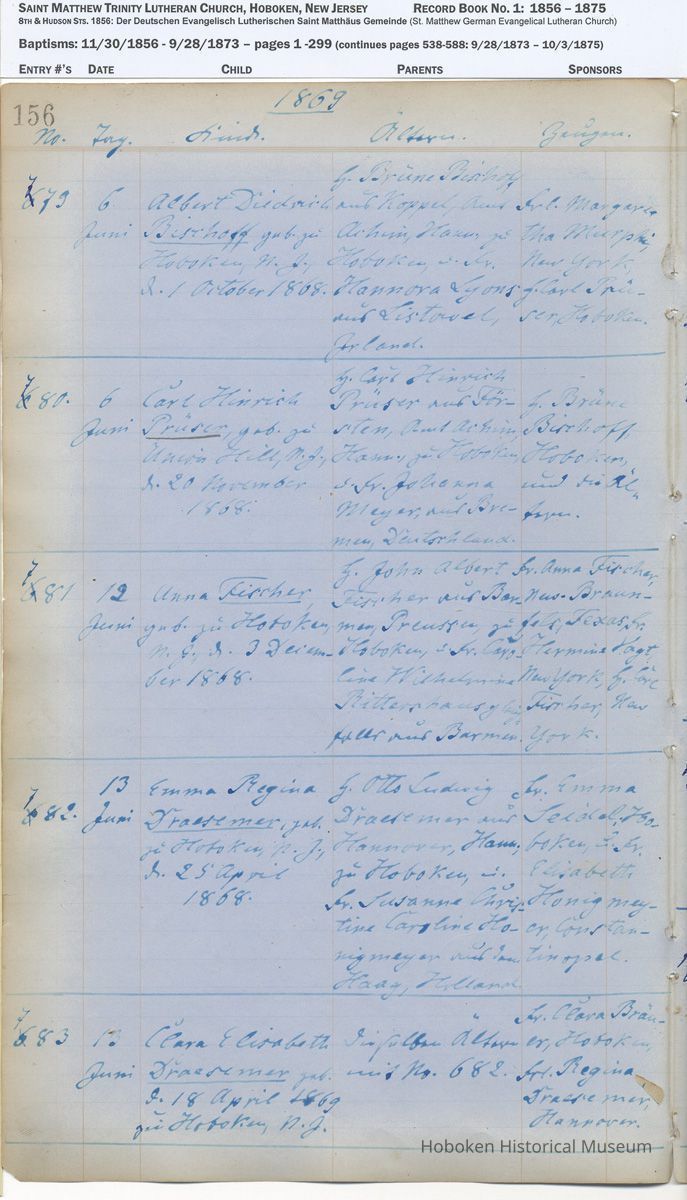 SAINT MATTHEW TRINITY LUTHERAN CHURCH, HOBOKEN, NEW JERSEY RECORD BOOK NO. 1: 1856 – 1875
8TH & HUDSON STS. 1856: Der Deutschen Evangelisch Lutherischen Saint Matthäus Gemeinde (St. Matthew German Evangelical Lutheran Church)
Baptisms: 11/30/1856 - 9/28/1873 – pages 1 -299 (continues pages 538-588: 9/28/1873 – 10/3/1875)
ENTRY #'S DATE CHILD PARENTS SPONSORS
1869
156
No. Tag. Kind. Ältern. Zeugen.
779
6
Juni
Albert Diedrich
Bischoff geb. zu
Hoboken, N. J.,
d. 1 October 1868.
H. Brüne Bischoff
aus Koppel, Amt
Achim, Hann., zu
Hoboken, u. Fr.
Hannora Lyons
aus Listovel,
Irland.
Frl. Margare
tha Murphi,
New York,
H. Carl Prü-
ser, Hoboken.
780.
6
Juni
Carl Hinrich
Prüser, geb. zu
Union Hill, N. J.,
d. 20 November
1868.
H. Carl Hinrich
Prüser aus För-
sten, Amt Achim,
Hann., zu Hoboken,
u. Fr. Johanna
Meyer, aus Bre-
men, Deutschland.
H. Brüne
Bischoff
Hoboken,
und die Äl-
tern.
781
12
Juni
Anna Fischer,
geb. zu Hoboken,
N. J., d. 3 Decem-
ber 1868.
H. John Albert
Fischer aus Bar-
men, Preussen, zu
Hoboken, u. Fr. Caro-
line Wilhelmine
Rittershaus,
falls aus Barmen.
Fr. Anna Fischer,
New-Braun-
fels, Texas, Fr.
Hermine Vogt,
New York, H. Carl
Fischer, New
York.
782.
13
Juni
Emma Regina
Draesemer, geb.
zu Hoboken, N. J.,
d. 25 April
1868.
H. Otto Ludwig
Draesemer aus
Hannover, Hann.,
zu Hoboken, u.
Fr. Susanne Chris-
tine Caroline Ho-
nigmeyer aus dem
Haag, Holland.
Fr. Emma
Seidel, Ho-
boken, u. Fr.
Elisabeth
Honigmey-
er, Constan-
tinopel.
783
13
Juni
Clara Elisabeth
Draesemer geb.
d. 18 April 1869
zu Hoboken, N. J.
Dieselben Ältern
mit No. 682.
Fr. Clara Bräu-
er, Hoboken,
Frl. Regina
Draesemer,
Hannover.
Hoboken Historical Museum